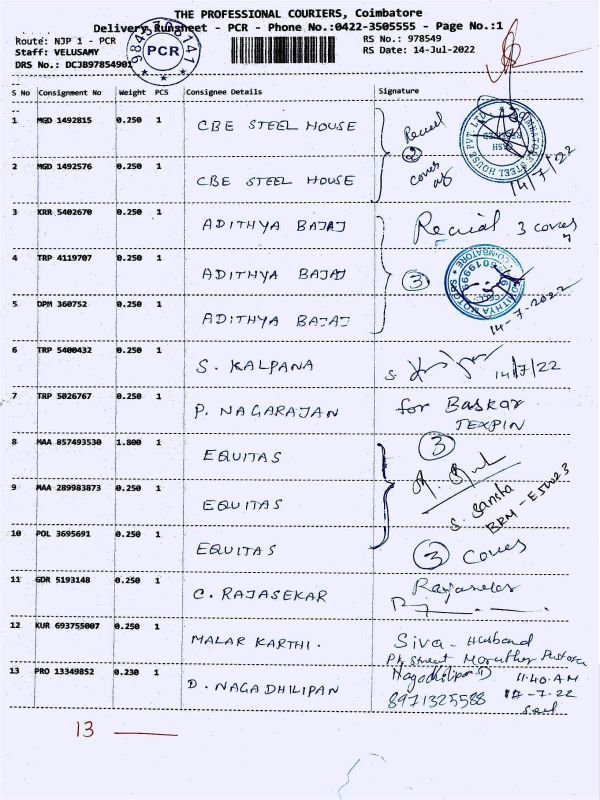 THE PROFESSIONAL COURIERS, Coimbatore
Delivery Runsheet - PCR - Phone No.:0422-3505555 - Page No.:1
Route: NJP 1 - PCR
RS No.: 978549
Staff: VELUSAMY
RS Date: 14-Jul-2022
DRS No.: DCJB97854901
PCR
S No Consignment No Weight PCS Consignee Details Signature
1 MGD 1492815 0.250 1 CBE STEEL HOUSE
2
2 MGD 1492576 0.250 1 CBE STEEL HOUSE
14/7/22
3 KRR 5402670 0.250 1 ADITHYA BAJAJ
3
4 TRP 4119707 0.250 1 ADITHYA BAJAJ
3
5 DPM 360752 0.250 1 ADITHYA BAJAJ
14-7-2022
6 TRP 5400432 0.250 1 S. KALPANA
14/7/22
7 TRP 5026767 0.250 1 P. NAGARAJAN for Baskar
TEXPIN
8 MAA 857493530 1.800 1 EQUITAS 3
9 MAA 289983873 0.250 1 EQUITAS
10 POL 3695691 0.250 1 EQUITAS 3
11 GDR 5193148 0.250 1 C. RAJASEKAR
12 KUR 693755007 0.250 1 MALAR KARTHI. Siva - Husband
13 PRO 13349852 0.230 1 D. NAGADHILIPAN Nagadhilipan.D 11:40 AM
8971325588
13